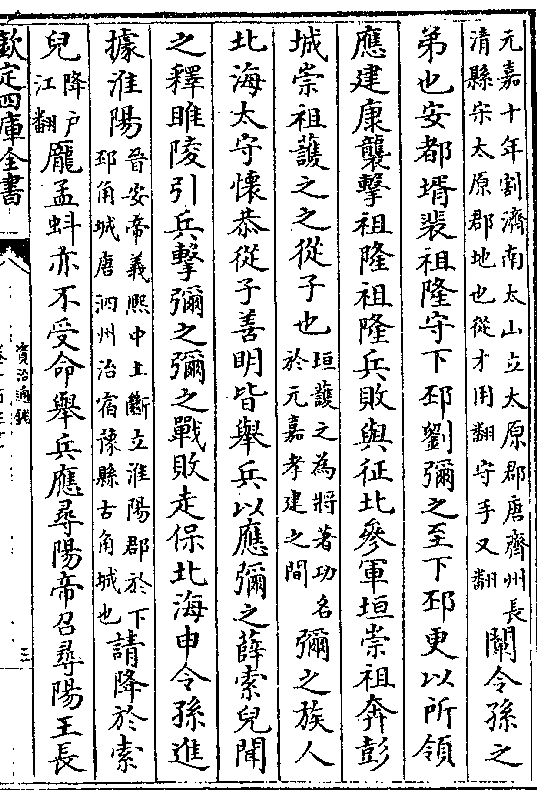 元嘉十年割濟南太山立太原郡唐齊州長
清縣宋太原郡地也從才用翻守手又翻
闡令孫之
弟也安都壻裴祖隆守下邳劉彌之至下邳更以所領
應建康襲擊祖隆祖隆兵敗與征北參軍垣崇祖奔彭
城崇祖護之之從子也
垣護之為將著功名
於元嘉孝建之間
彌之族人
北海太守懷恭從子善明皆舉兵以應彌之薛索兒聞
之釋睢陵引兵擊彌之彌之戰敗走保北海申令孫進
據淮陽
晉安帝義熙中土斷立淮陽郡於下
邳角城唐泗州治宿豫縣古角城也
請降於索
兒
降戶
江翻
龎孟蚪亦不受命舉兵應尋陽帝召尋陽王長
欽定四庫全書
資治通鑑